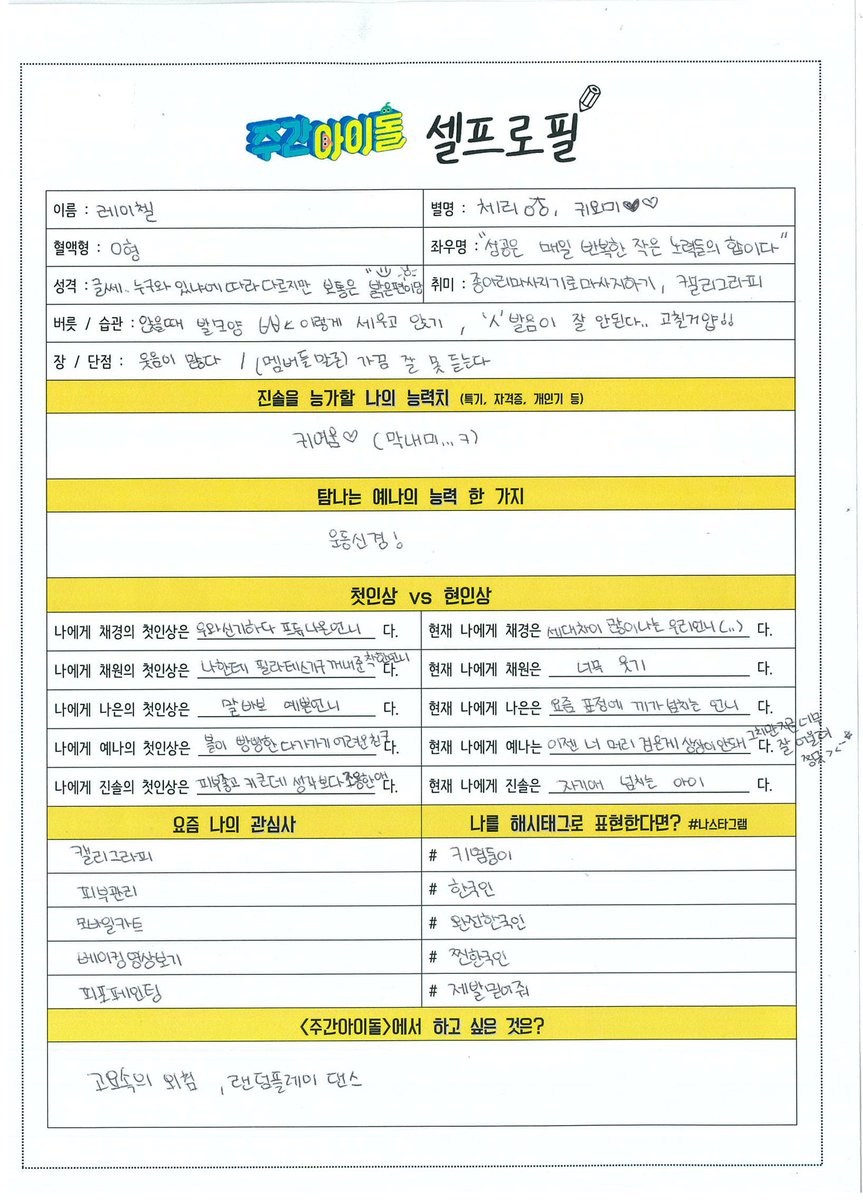 주간아이돌 셀프로필
이름 : 레이첼
별명 : 체리, 귀요미♥♡
혈액형 : O형
좌우명 : "성공은 매일 반복한 작은 노력들의 합이다"
성격 : 글쎄.. 누구와 있냐에 따라 다르지만 보통은 "밝은편이당"
취미 : 종아리마사지기로 마사지하기, 캘리그라피
버릇 / 습관 : 앉을때 발모양 이렇게 세우고 앉기, 'ㅅ' 발음이 잘 안된다.. 고칠거얍!!
장 / 단점 : 웃음이 많다 / (멤버들 말론) 가끔 잘 못 듣는다
진솔을 능가할 나의 능력치 (특기, 자격증, 개인기 등)
귀여움♡ (막내미...ㅋ)
탐나는 예나의 능력 한 가지
운동신경!
첫인상 vs 현인상
나에게 채경의 첫인상은 우와신기하다 프듀나온언니 다.
현재 나에게 채경은 세대차이 많이나는 우리언니(..) 다.
나에게 채원의 첫인상은 나한테 필라테스기구 꺼내준 착한언니 다.
현재 나에게 채원은 너무 웃기 다.
나에게 나은의 첫인상은 말바보 예쁜언니 다.
현재 나에게 나은은 요즘 표정에 끼가 넘치는 언니 다.
나에게 예나의 첫인상은 볼이 빵빵한 다가가기 어려운 친구 다.
현재 나에게 예나는 이젠 너 머리 검은게 상상이 안돼 다. 그치만 지금 너무 잘 어울려
나에게 진솔의 첫인상은 피부좋고 키큰데 생각보다 조용한 애 다.
현재 나에게 진솔은 자기애 넘치는 아이 다.
요즘 나의 관심사
나를 해시태그로 표현한다면? #나스타그램
캘리그라피
# 키염둥이
피부관리
# 한국인
모바일카트
# 완전한국인
베이킹영상보기
# 찐한국인
피포페인팅
# 제발믿어줘
<주간아이돌>에서 하고 싶은 것은?
고요속의 외침, 랜덤플레이 댄스